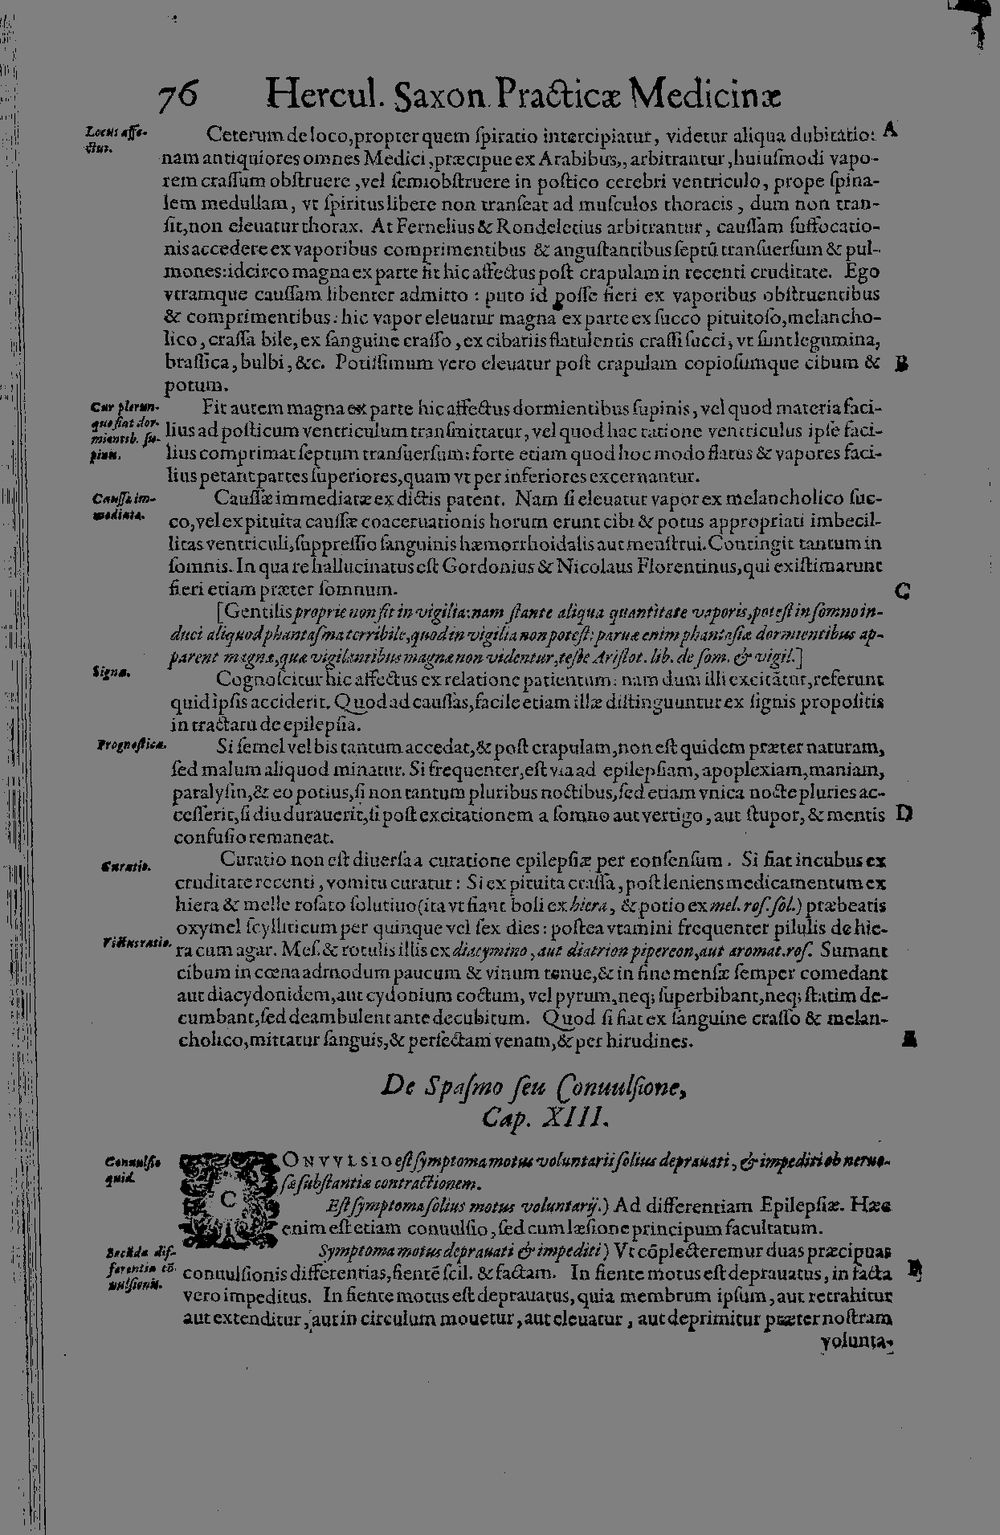 76 Hercul. Saxon. Practicæ Medicinæ
Locus affe-
ctur.
Ceterum de loco, propter quem ſpiratio intercipiatur, videtur aliqua dubitatio: A
nam antiquiores omnes Medici, præcipue ex Arabibus,, arbitrantur, huiuſmodi vapo-
rem craſſum obſtruere, vel ſemiobſtruere in poſtico cerebri ventriculo, prope ſpina-
lem medullam, vt ſpiritus libere non tranſeat ad muſculos thoracis, dum non tran-
ſit, non eleuatur thorax. At Fernelius & Rondeletius arbitrantur, cauſſam ſuffocatio-
nis accedere ex vaporibus comprimentibus & anguſtantibus ſeptũ tranſuerſum & pul-
mones: idcirco magna ex parte fit hic affectus poſt crapulam in recenti cruditate. Ego
vtramque cauſſam libenter admitto: puto id poſſe fieri ex vaporibus obſtruentibus
& comprimentibus: hic vapor eleuatur magna ex parte ex ſucco pituitoſo, melancho-
lico, craſſa bile, ex ſanguine craſſo, ex cibariis flatulentis craſſi ſucci, vt ſunt legumina,
braſſica, bulbi, &c. Potiſſimum vero eleuatur poſt crapulam copioſumque cibum & B
potum.
Cur plerun-
que fiat dor-
mientib. ſu-
pinis.
Fit autem magna ex parte hic affectus dormientibus ſupinis, vel quod materia faci-
lius ad poſticum ventriculum tranſmittatur, vel quod hac ratione ventriculus ipſe faci-
lius comprimat ſeptum tranſuerſum: forte etiam quod hoc modo flatus & vapores faci-
lius petant partes ſuperiores, quam vt per inferiores excernantur.
Cauſſa im-
mediata.
Cauſſæ immediatæ ex dictis patent. Nam ſi eleuatur vapor ex melancholico ſuc-
co, vel ex pituita cauſſæ coaceruationis horum erunt cibi & potus appropriati imbecil-
litas ventriculi, ſuppreſſio ſanguinis hæmorrhoidalis aut menſtrui. Contingit tantum in
ſomnis. In qua re hallucinatus eſt Gordonius & Nicolaus Florentinus, qui exiſtimarunt
fieri etiam præter ſomnum. C
[Gentilis proprie non fit in vigilia: nam ſtante aliqua quantitate vaporis, poteſt in ſomno in-
duci aliquod phantaſma terribile, quod in vigilia non poteſt: paruæ enim phantaſiæ dormientibus ap-
parent magnæ, quæ vigilantibus magnæ non videntur, teſte Ariſtot. lib. de ſom. & vigil.]
Signa.
Cognoſcitur hic affectus ex relatione patientum: nam dum illi excitãtur, referunt
quid ipſis acciderit. Quod ad cauſſas, facile etiam illæ diſtinguuntur ex ſignis propoſitis
in tractatu de epilepſia.
Prognoſtica.
Si ſemel vel bis tantum accedat, & poſt crapulam, non eſt quidem præter naturam,
ſed malum aliquod minatur. Si frequenter, eſt via ad epilepſiam, apoplexiam, maniam,
paralyſin, & eo potius, ſi non tantum pluribus noctibus, ſed etiam vnica nocte pluries ac-
ceſſerit, ſi diu durauerit, ſi poſt excitationem a ſomno aut vertigo, aut ſtupor, & mentis D
confuſio remaneat.
Curatio.
Curatio non eſt diuerſa a curatione epilepſiæ per conſenſum. Si fiat incubus ex
cruditate recenti, vomitu curatur: Si ex pituita craſſa, poſt leniens medicamentum ex
hiera & melle roſato ſolutiuo (ita vt fiant boli ex hiera, & potio ex mel. roſ. ſol.) præbeatis
oxymel ſcylliticum per quinque vel ſex dies: poſtea vtamini frequenter pilulis de hie-
Victus ratio.
ra cum agar. Meſ. & rotulis illis ex diacymino, aut diatrion pipereon, aut aromat. roſ. Sumant
cibum in cœna admodum paucum & vinum tenue, & in fine menſæ ſemper comedant
aut diacydonidem, aut cydonium coctum, vel pyrum, neq; ſuperbibant, neq; ſtatim de-
cumbant, ſed deambulent ante decubitum. Quod ſi fiat ex ſanguine craſſo & melan-
cholico, mittatur ſanguis, & perſectam venam, & per hirudines. A
De Spaſmo ſeu Conuulſione,
Cap. XIII.
Conuulſio
quid.
CONVVLSIO eſt ſymptoma motus voluntarii ſolius deprauati, & impediti ob neruo-
ſæ ſubſtantiæ contractionem.
Eſt ſymptoma ſolius motus voluntarij.) Ad differentiam Epilepſiæ. Hæc
enim eſt etiam conuulſio, ſed cum læſione principum facultatum.
dif-
ferentiæ cõ-
uulſionis.
Symptoma motus deprauati & impediti) Vt cõplecteremur duas præcipuas
conuulſionis differentias, fientẽ ſcil. & factam. In fiente motus eſt deprauatus, in facta B
vero impeditus. In fiente motus eſt deprauatus, quia membrum ipſum, aut retrahitur
aut extenditur, aut in circulum mouetur, aut eleuatur, aut deprimitur præter noſtram
volunta-